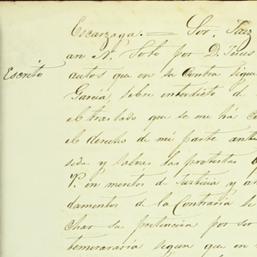 Escarzaga. — Sor. Juez
an N. Soto por D. Jesus
Escrito
autos que en su contra sigue
Garcia, sobre interdicto de
el traslado que se me ha
el derecho de mi parte ante
sido y salvas las protestas
Yº en meritos de justicia y
damentos de la Contraria
char su pretencion por ser
temeraria segun que en